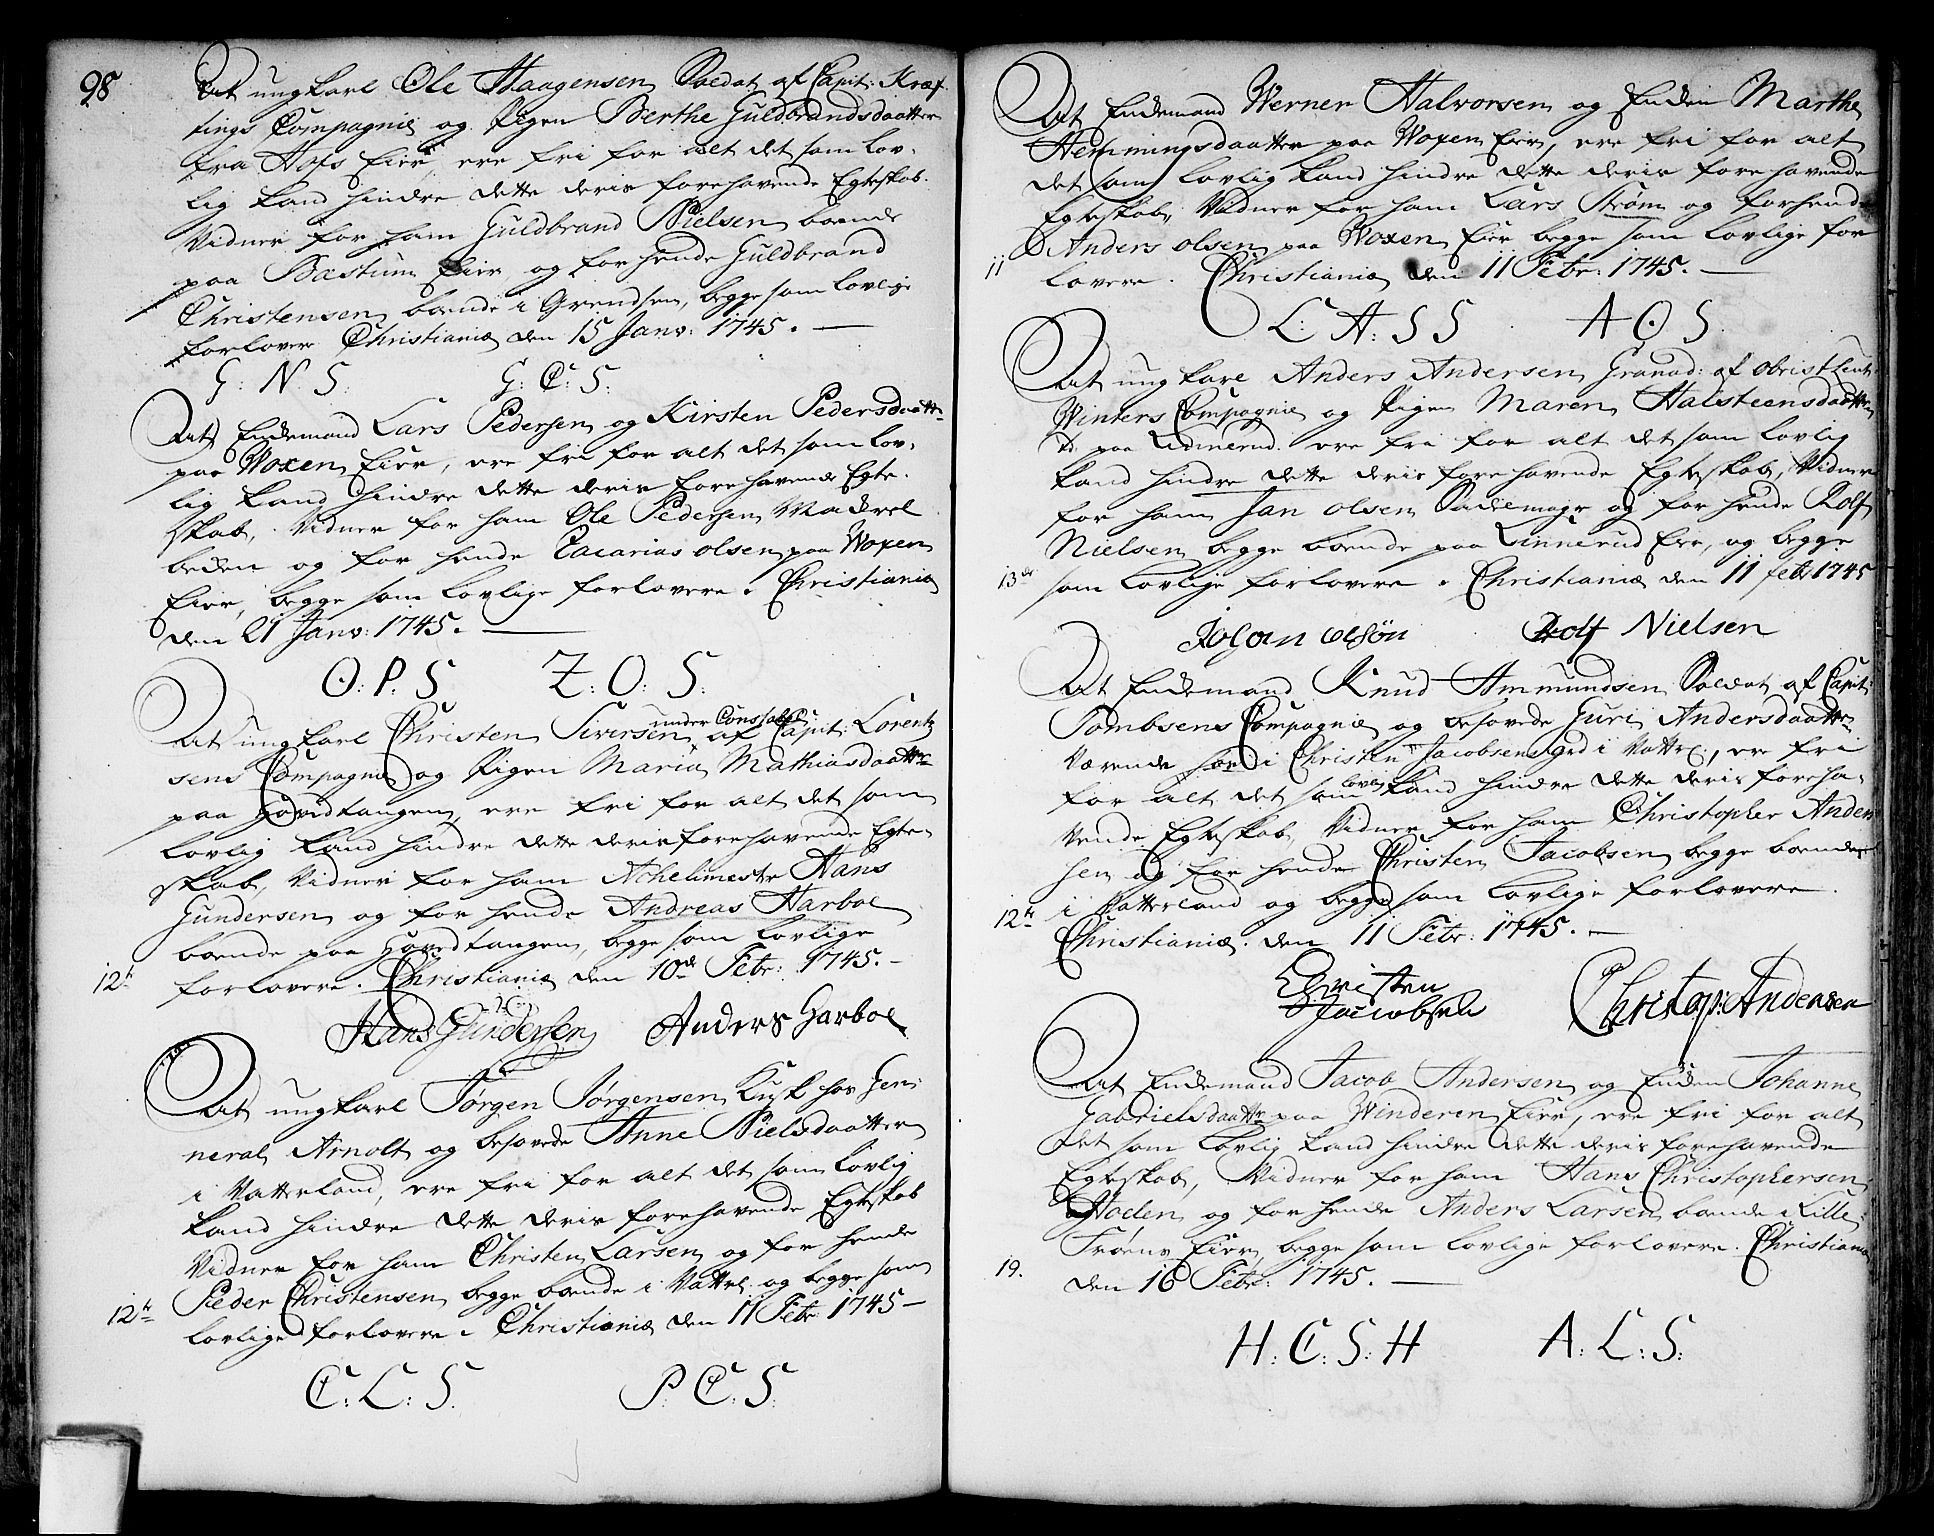 98
At ungkarl Ole Haagensen Soldat af Capit: Kref-
tings Compagnie og Pigen Berthe Guldbrandsdaatter
fra Hofs Eier, ere fri for alt det som lov-
lig kand hindre dette deris forehavende Egteskab.
Vidner for ham Guldbrand Nielsen boende
paa Bæstum Eier, og for hende Guldbrand
Christensen boende i Grendsen, begge som lovlige
forlovere Christianiæ den 15 Janv: 1745. —
G: N: S: G: C: S:
At Enkemand Lars Pedersen og Kirsten Pedersdaatter
paa Woxen Eier, ere fri for alt det som lov-
lig kand hindre dette deris forehavende Egte-
skab, Vidner for ham Ole Pedersen
og for hende Zacarias olsen paa Woxen
Eier, begge som lovlige forlovere. Christianiæ
den 21 Janv: 1745. —
O: P: S Z: O: S:
under Constabel
At ungkarl Christen Siversen af Capit: Lorentz
sens Compagnie og Pigen Maria Mathiasdaatter
paa Hovedtangen, ere fri for alt det som
lovlig kand hindre dette deris forehavende Egte-
skab, Vidner for ham Hans
Gundersen og for hende Andreas Harboe
boende paa Hovedtangen, begge som lovlige
12te forlovere. Christianiæ den 10de Febr: 1745. —
Hans Gundersen Anders Harboe
At ungkarl Jørgen Jørgensen Kusk hos Gen-
neral Arnolt og besovede Anne Nielsdaatter
i Vatterland, ere fri for alt det som lovlig
kand hindre dette deris forehavende Egteskab
Vidner for ham Christen Larsen og for hende
Peder Christensen begge boende i Vatterl: og begge som
12te lovlige forlovere. Christianiæ den 11 Febr: 1745 —
C: L: S. P: C: S:
At Enkemand Werner Halvorsen og Enken Marthe
Hemmingsdaatter paa Woxen Eier, ere fri for alt
det som lovlig kand hindre dette deris forehavende
Egteskab, Vidner for ham Lars Strøm og for hende
Anders olsen paa Woxen Eier begge som lovlige for
11 lovere. Christianiæ den 11 Febr: 1745. —
L: A: S S A O S
At ungkarl Anders Andersen Granad: af Obrist Leut:
Winters Compagnie og Pigen Maren Halsteensdaatter
paa Linnerud ere fri for alt det som lovlig
kand hindre dette deris forehavende Egteskab, Vidner
for ham Jan olsen Sademager og for hende Rolf
Nielsen begge boende paa Linnerud Eier, og begge
13de som lovlige forlovere. Christianiæ den 11 febr 1745
Johan olsøn Rolf Nielsen
At Enkemand Knud Ammundsen Soldat af Capit:
Tombsens Compagnie og besovede Guri Andersdaatter
Værende hos Christen Jacobsens Grd i Vatterl:, ere fri
for alt det som lovlig kand hindre dette deris foreha-
vende Egteskab, Vidner for ham Christopher Ander
sen og for hende Christen Jacobsen begge boende
12te i Vatterland og begge som lovlige forlovere.
Christianiæ. den 11 Febr: 1745. —
Christen Jacobsen Christop: Andersen
At Enkemand Jacob Andersen og Enken Johanne
Gabrielsdaatter paa Winderen Eier, ere fri for alt
det som lovlig kand hindre dette deris forehavende
Egteskab, Vidner for ham Hans Christophersen
Holen og for hende Anders Larsen boende i Lille
Frøens Eier, begge som lovlige forlovere. Christianiæ
19. den 16 Febr: 1745. —
H: C: S: H A: L: S: